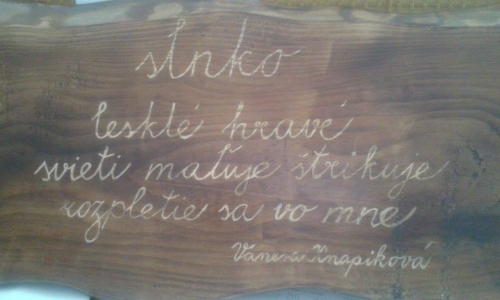 slnko
lesklé hravé
svieti maľuje štrikuje
rozpletie sa vo mne
Vanesa Knapiková